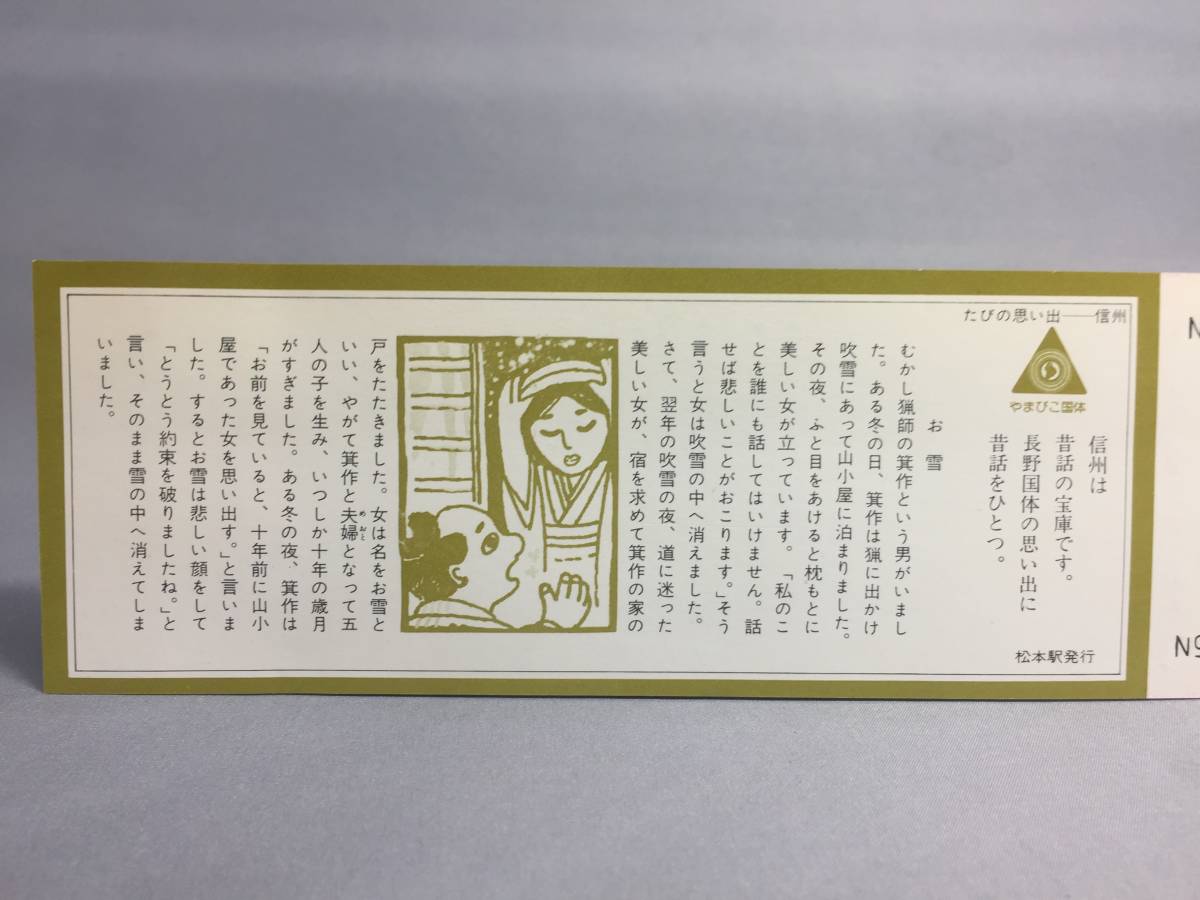 たびの思い出――信州
やまびこ国体
信州は
昔話の宝庫です。
長野国体の思い出に
昔話をひとつ。
松本駅発行
お雪
むかし猟師の箕作という男がいまし
た。ある冬の日、箕作は猟に出かけ
吹雪にあって山小屋に泊まりました。
その夜、ふと目をあけると枕もとに
美しい女が立っています。「私のこ
とを誰にも話してはいけません。話
せば悲しいことがおこります。」そう
言うと女は吹雪の中へ消えました。
さて、翌年の吹雪の夜、道に迷った
美しい女が、宿を求めて箕作の家の
戸をたたきました。女は名をお雪と
いい、やがて箕作と夫婦となって五
めおと
人の子を生み、いつしか十年の歳月
がすぎました。ある冬の夜、箕作は
「お前を見ていると、十年前に山小
屋であった女を思い出す。」と言いま
した。するとお雪は悲しい顔をして
「とうとう約束を破りましたね。」と
言い、そのまま雪の中へ消えてしま
いました。
N
5N